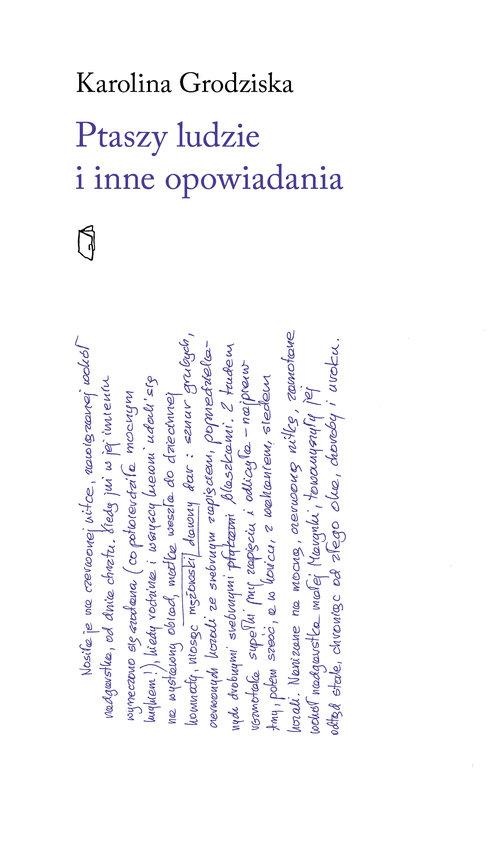 Karolina Grodziska
Ptaszy ludzie
i inne opowiadania
Nosiła je na czerwonej nitce, zawiązanej wokół
nadgarstka, od dnia chrztu. Kiedy już w jej imieniu
wyrzeczono się szatana (co potwierdziła mocnym
krykiem!), kiedy rodzina i wszyscy krewni udali się
na wystawny obiad, matka weszła do dziecinnej
komnaty, niosąc mężowski dawny dar: sznur grubych,
czerwonych korali ze srebrnym zapięciem, poprzedziela-
nych drobnymi srebrnymi blaszkami. Z trudem
rozplotała supełki przy zapięciu i odliczyła – najpierw
trzy, potem sześć, a w końcu, z wahaniem, siedem
korali. Nanizane na mocną, czerwoną nitkę, zamotane
wokół nadgarstka małej Marynki, towarzyszyły jej
odtąd stale, chroniąc od złego oka, choroby i uroku.